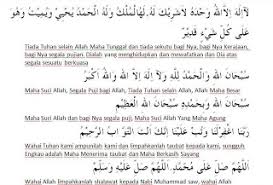 لَا إِلٰهَ إِلَّا اللهُ وَحْدَهُ لَا شَرِيْكَ لَهُ، لَهُ الْمُلْكُ وَلَهُ الْحَمْدُ يُحْيِيْ وَيُمِيْتُ وَهُوَ
عَلَى كُلِّ شَيْءٍ قَدِيْرٌ
Tiada Tuhan selain Allah Maha Tunggal dan tiada sekutu bagi Nya, bagi Nya Kerajaan,
bagi Nya segala pujian. Dialah yang menghidupkan dan mewafatkan dan Dia atas
segala sesuatu berkuasa
سُبْحَانَ اللهِ وَالْحَمْدُ لِلّٰهِ وَلَا إِلٰهَ إِلَّا اللهُ وَاللهُ أَكْبَرُ
Maha Suci Allah, Segala Puji bagi Allah, Tiada Tuhan selain Allah, Allah Maha Besar
سُبْحَانَ اللهِ وَبِحَمْدِهِ سُبْحَانَ اللهِ الْعَظِيْمِ
Maha Suci Allah, Maha Suci Allah Yang Maha Agung
رَبَّنَا اغْفِرْلَنَا وَتُبْ عَلَيْنَا إِنَّكَ أَنْتَ التَّوَّابُ الرَّحِيْمُ
Wahai Allah ampunilah kami dan limpahkanlah taubat kepada kami, sungguh
Engkau adalah Maha Menerima taubat dan Maha Berkasih Sayang
اَللّٰهُمَّ صَلِّ عَلَى مُحَمَّدٍ، اَللّٰهُمَّ صَلِّ عَلَيْهِ وَسَلِّمْ
Wahai Allah limpahkanlah shalawat kepada Nabi Muhammad, Wahai Allah